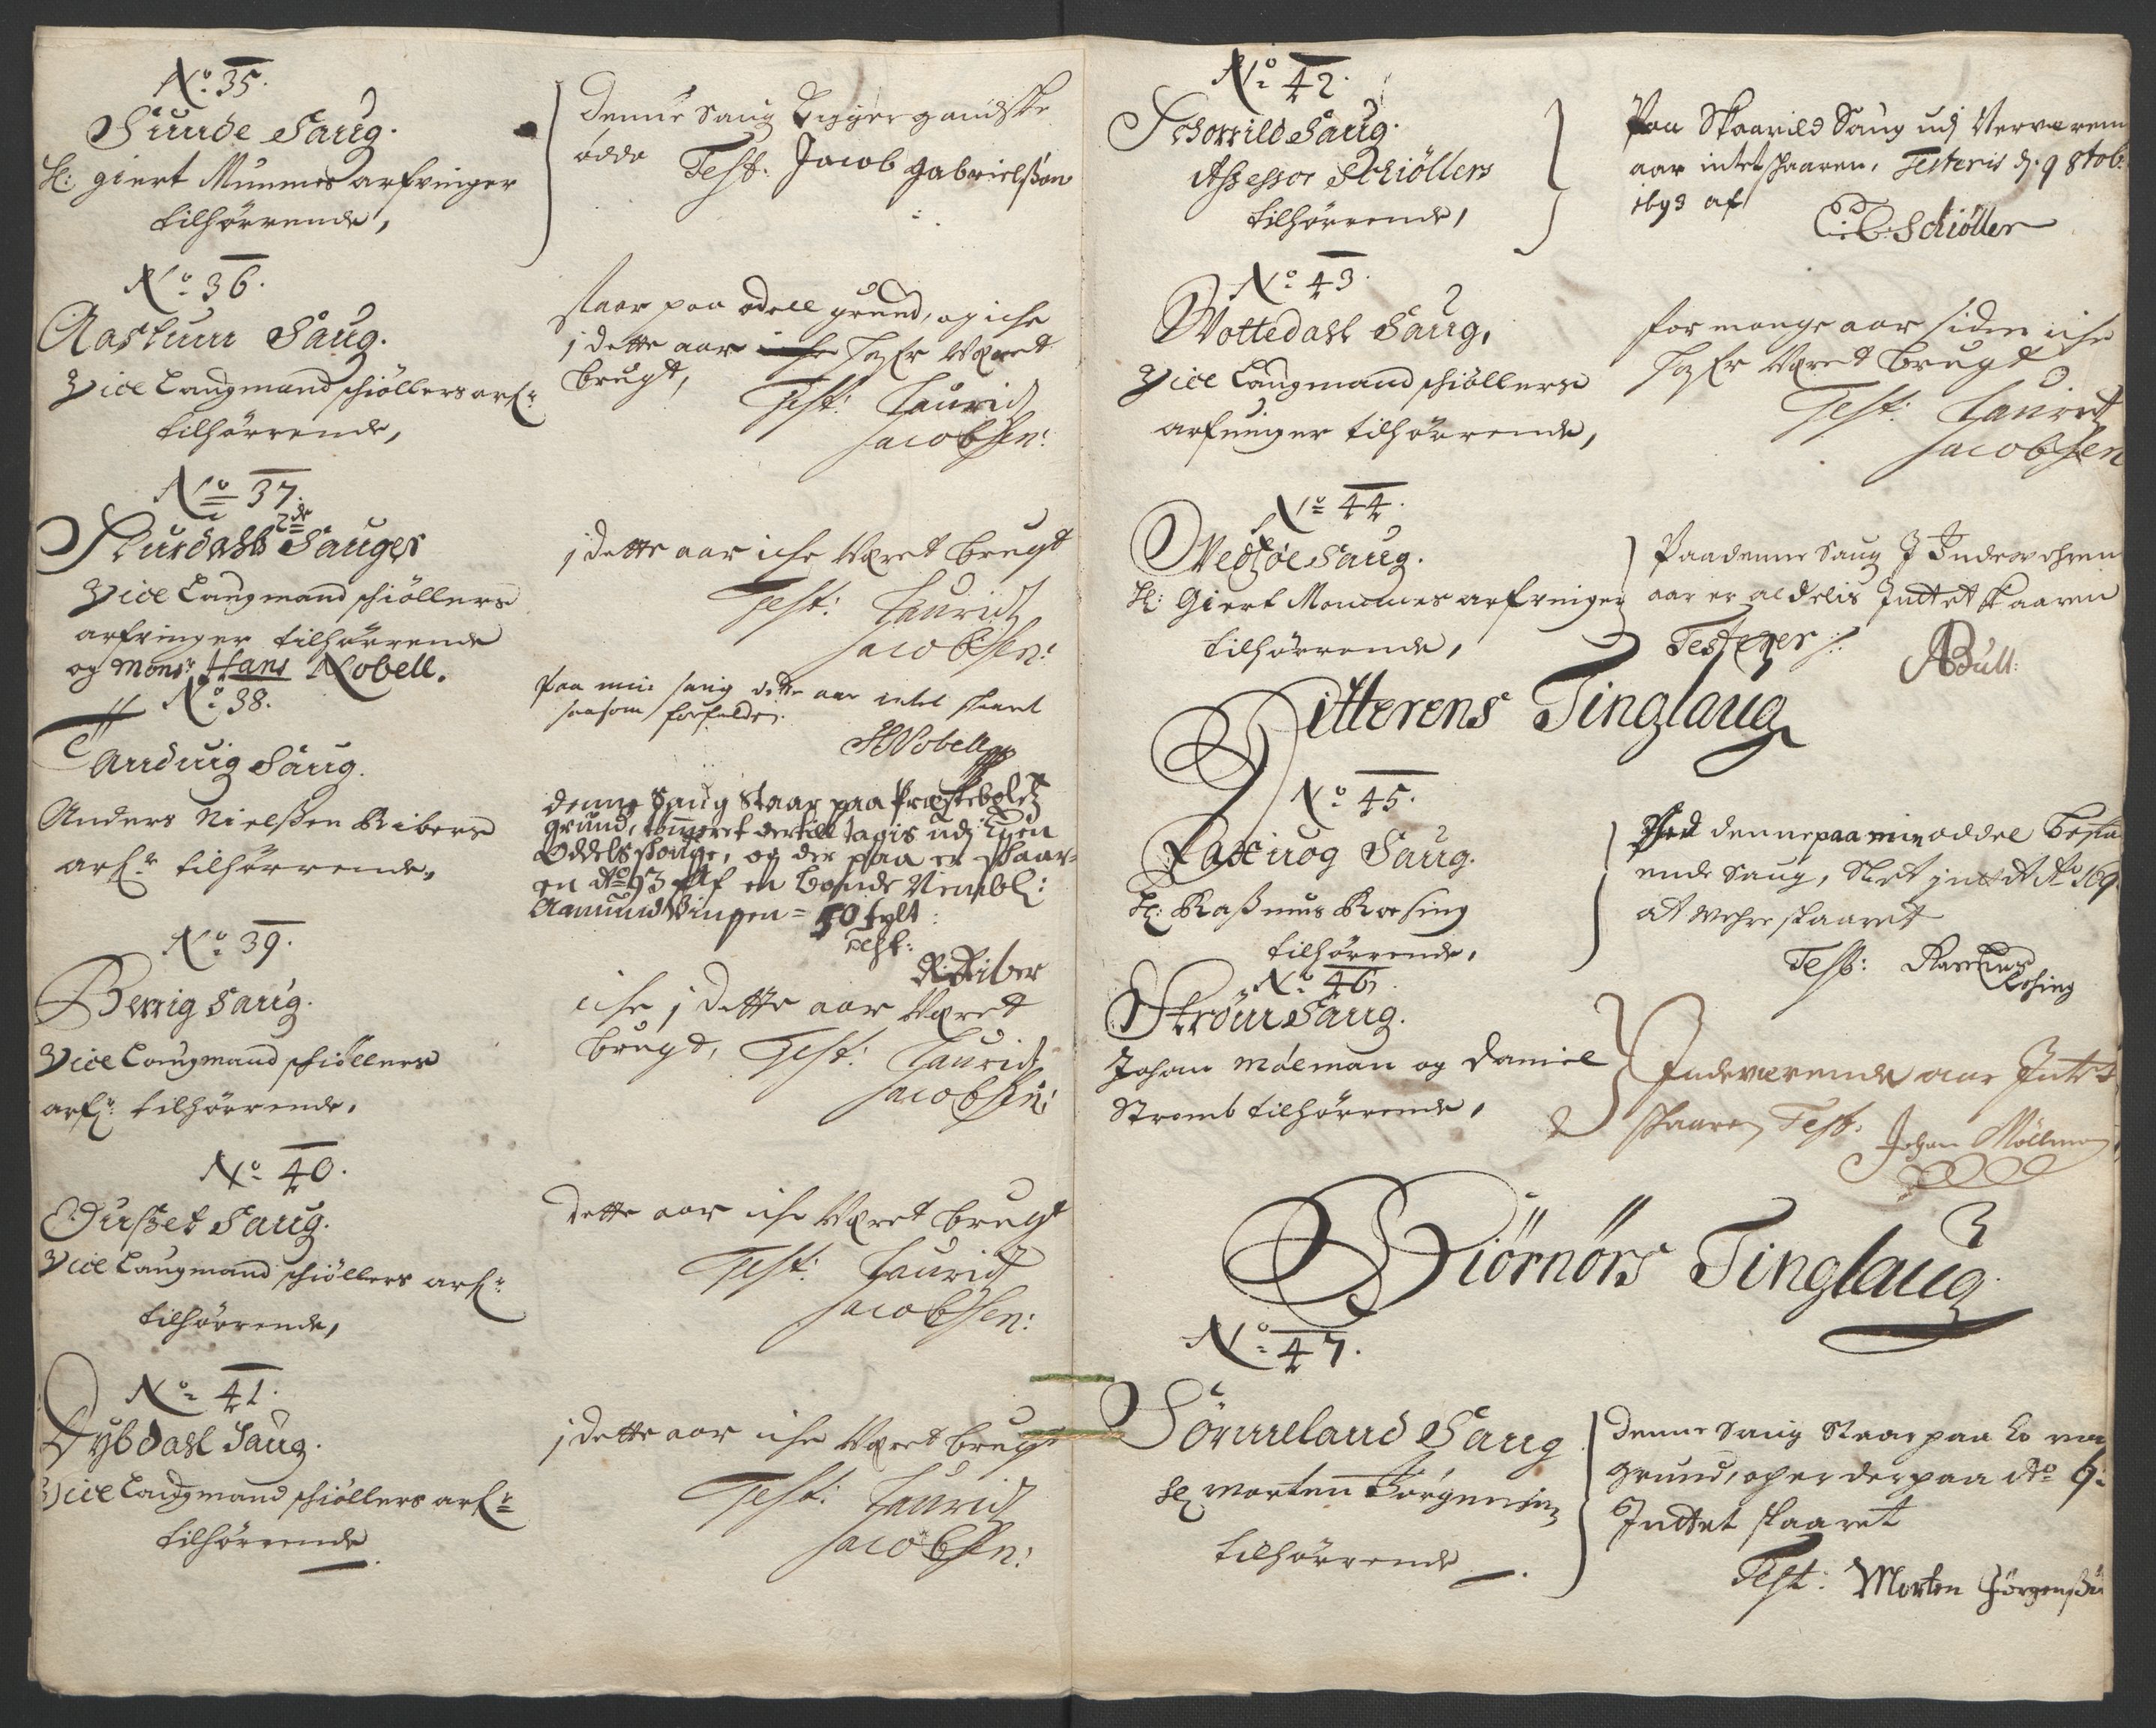 No: 35.
Sunde Saug.
Sl: Giert Mummes arfvinger
tilhørrende,
Denne Saug Ligger gandske
ødde Test: Jacob Gabrielsøn
No: 36.
Aastum Saug.
Vice Laugmand Schiøllers arfr:
tilhørrende,
staar paa odell grund, og iche
i dette aar hafr Været
brugt,
Test: Lauridz
Jacobsen:
No: 37.
2de
Sauger
Vice Laugmand Schiøllers
arfvinger tilhørrende
og Monsr: Hans Nobell.
i dette aar iche Været brugt
Test: Lauridz
Jacobsen:
Paa min saug dette aar intet skaaret
saasom forfalden.
HNobell
No: 38.
Saug.
Anders Nielssen Ribers
arfr: tilhørrende,
Denne Saug Staar paa Præsteboldz
grund, tømmeret dertill tagis udj Egen
Oddels skouge, og der paa er skaar-
en Ao 93 Af en bonde Nembl:
Aamund Vingen = 50 tylt:
Test:
Riber
No: 39.
Berrig Saug.
Vice Laugmand Schiøllers
arfr: tilhørrende,
iche i dette aar Været
brugt, Test: Lauridz
Jacobsen:
No: 40.
Saug.
Vice Laugmand Schiøllers arfr:
tilhørrende,
dette aar iche Været brugt
Test: Lauridz
Jacobsen:
No: 41.
Dybdahl Saug.
Vice Laugmand Schiøllers arfr:
tilhørrende
i dette aar iche Været brugt
Test: Lauridz
Jacobsen:
No: 42.
Schorild Saug.
Assessor Schiøllers
tilhørrende,
Paa Skaarild Saug udj Nerværen
aar intet skaaren, Testeris d. 9 8tob:
1693 af
Schiøller
No: 43.
Wottedahl Saug,
Vice Laugmand Schiøllers
arfvinger tilhørrende,
for mange aar siden iche
hafr Været brugt
Test: Lauridz
Jacobsen
No: 44.
Saug.
Sl: Giert Mommes arfvinger
tilhørrende,
Paa denne Saug I Indeværen
aar er aldelis Inttet skaaren
Testerer
ABull:
Hitterens Tinglaug
No: 45.
Laxiuog Saug.
Sl: Rassmus Roesing
tilhørrende,
Ved denne paa min oddel bestaa
ende Saug, Slet intet Ao 169
at Wehre skaaret
Test: Rasmus
Rosing
No: 46.
Strøm Saug.
Johan Mølman og Daniel
Stromb tilhørrende,
Indeværende aar Intet
skaaren Test:
Johan Møllman
Biörnörs Tinglaug.
No: 47.
Sörmeland Saug
Sl Morten Jørgensen
tilhørrende
Denne Saug Staar paa
grund, og er der paa Ao 9:
Inttet skaaret
Test: Morten Jørgenssen